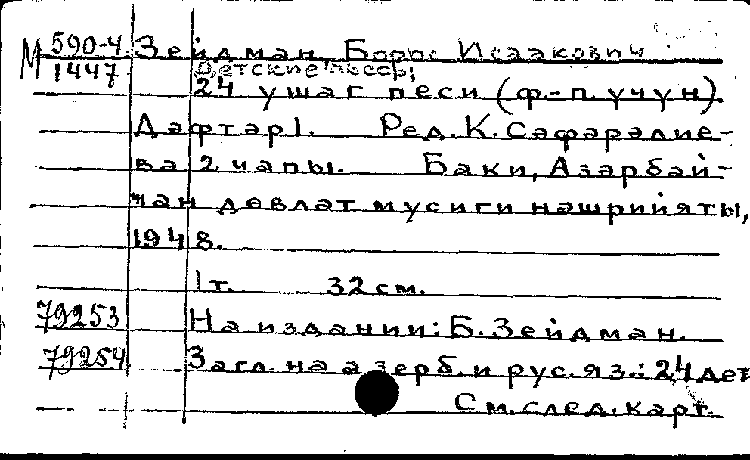 М 590-4 Зейдман, Борис Исаакович
1447 Детские пьесы
24 ушаг песи (ф.-п. учун).
Дафтар 1. Ред. К. Сафаралие-
ва 2 чапы. Баки, Азарбай-
чан девлат мусиги нашрийяты,
1948.
1 т. 32 см.
79253 На издании: Б. Зейдман.
79254 Загл. на азерб. и рус. яз.: 24 дет
См. след. карт.